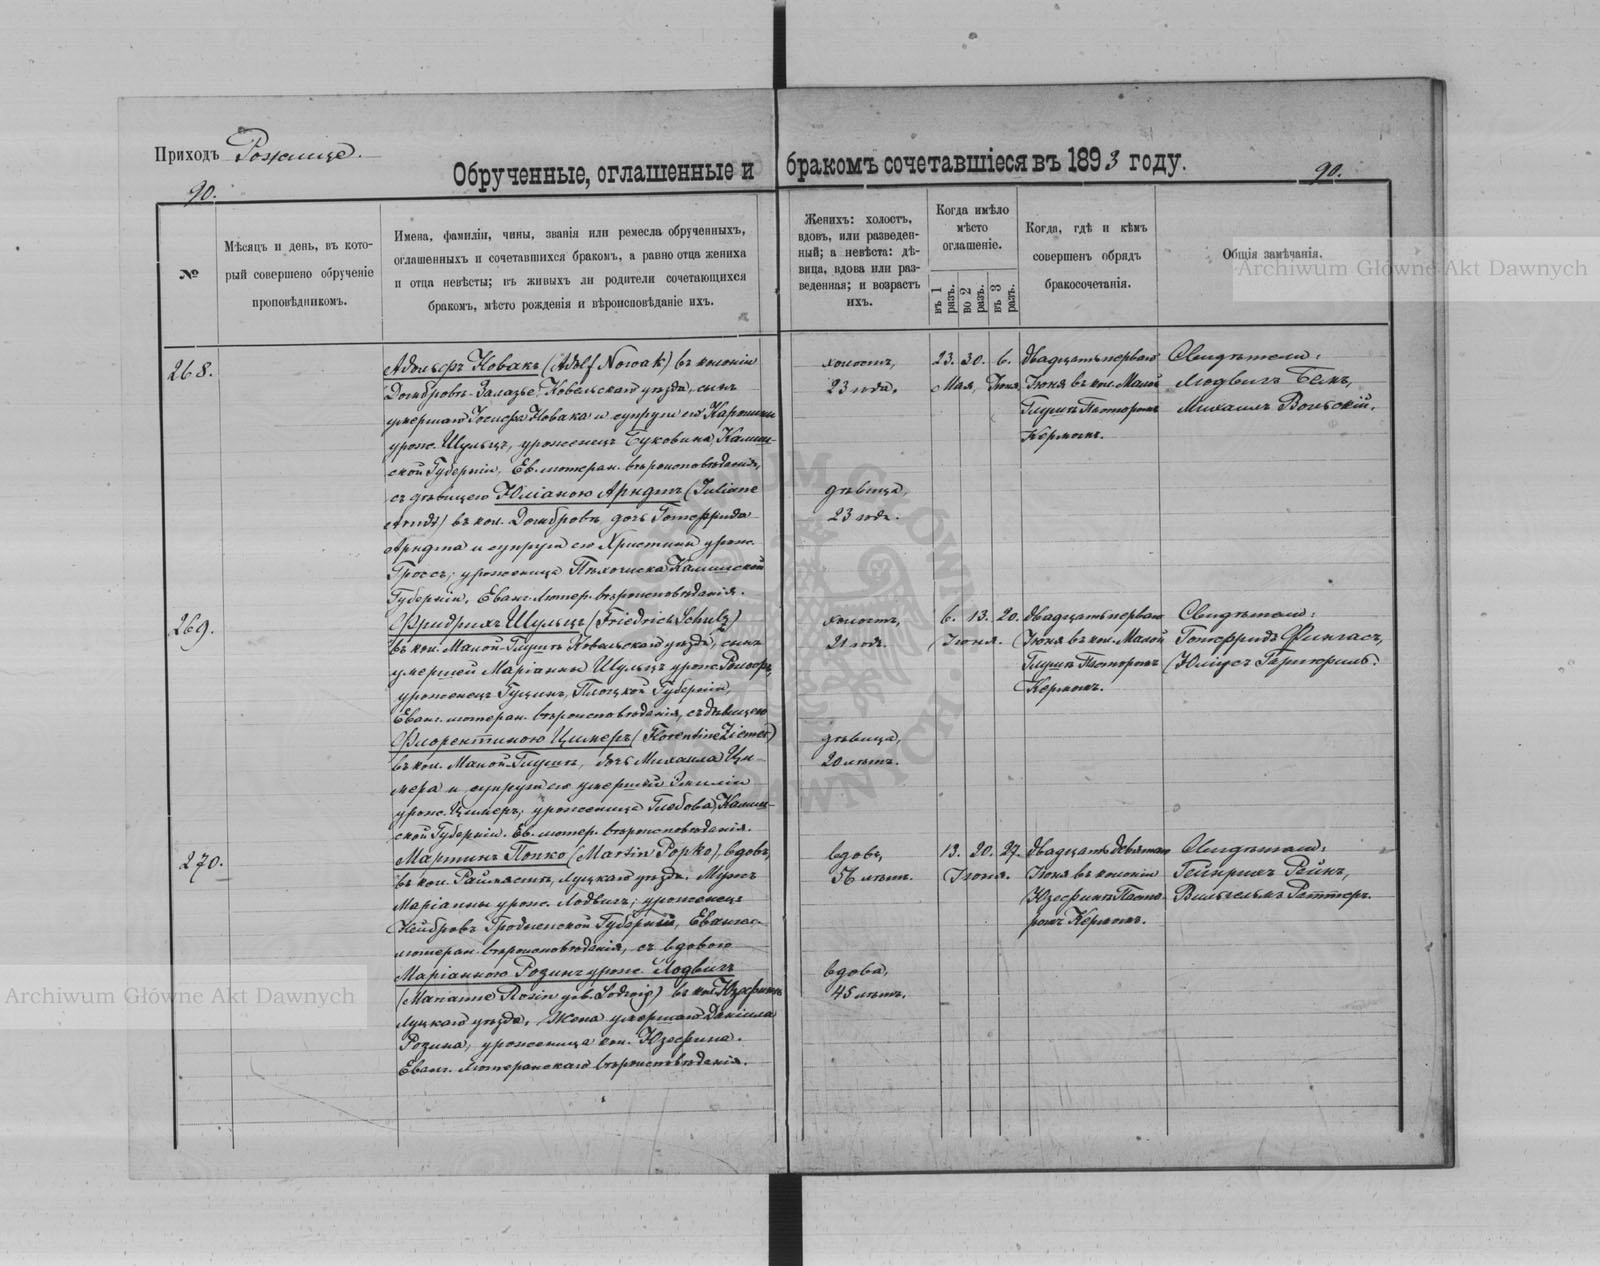 Приходъ Рожище.
Обрученные, оглашенные и бракомъ сочетавшіеся въ 1893 году.
90.
90.
№
Мѣсяцъ и день, въ который совершено обрученіе проповѣдникомъ.
Имена, фамиліи, чины, званія или ремесла обрученныхъ,
оглашенныхъ и сочетавшихся бракомъ, а равно отца жениха
и отца невѣсты; въ живыхъ ли родители сочетающихся
бракомъ, мѣсто рожденія и вѣроисповѣданіе ихъ.
Женихъ: холостъ,
вдовъ, или разведен-
ный; а невѣста: дѣ-
вица, вдова или раз-
веденная; и возрастъ
ихъ.
Когда имѣло
мѣсто
оглашеніе.
въ 1 разъ.
во 2 разъ.
въ 3 разъ.
Когда, гдѣ и кѣмъ
совершенъ обрядъ
бракосочетанія.
Общія замѣчанія.
268.
Адольфъ Новакъ (Adolf Nowak) въ колоніи
Домбровѣ-Залазье, Ковельскаго уѣзда, сынъ
умершаго Іосифа Новака и супруги его Каролины
урож. Шульцъ, уроженецъ Буковина, Калиш-
ской Губерніи, Ев. лютеран. вѣроисповѣданія,
съ дѣвицею Юліаною Арндтъ (Juliane
Arndt) въ кол. Домбровѣ, дочь Готфрида
Арндта и супруги его Христины урож.
Гроссъ; уроженица Калишской
Губерніи, Еванг. Лютер. вѣроисповѣданія.
холостъ,
23 года,
дѣвица,
23 года.
23. 30. 6.
Мая, Іюня
Двадцать перваго
Іюня въ кол. Малой
Глушѣ Пасторомъ
Кермомъ.
Свидѣтели:
Людвигъ Бенъ,
Михаилъ Вольскій.
269.
Фридрихъ Шульцъ (Friedrich Schulz)
въ кол. Малой-Глушѣ Ковельскаго уѣзда, сынъ
умершей Маріанны Шульцъ урож.
уроженецъ Плоцкой Губерніи,
Еванг. лютеран. вѣроисповѣданія, съ дѣвицею
Флорентиною Цимеръ (Florentine Ziemer)
въ кол. Малой-Глушѣ, дочь Михаила Ци-
мера и супруги его умершей Эмиліи
урож. Цимеръ; уроженица Глебова, Калиш-
ской Губерніи. Ев. лютер. вѣроисповѣданія.
холостъ,
21 года.
дѣвица,
20 лѣтъ.
6. 13. 20.
Іюня.
Двадцать перваго
Іюня въ кол. Малой
Глушѣ Пасторомъ
Кермомъ.
Свидѣтели:
Готфридъ Фингасъ,
Юліусъ
270.
Мартинъ Попко (Martin Popko), вдовъ,
въ кол. Луцкаго уѣзда. Мужъ
Маріанны урож. Лодвигъ; уроженецъ
Нейбровъ Гродненской Губерніи, Евангел.
лютеран. вѣроисповѣданія, съ вдовою
Маріанною Розинъ урож. Лодвигъ
(Marianne Rosin geb. Lodwig) въ кол. Юзефинѣ
Луцкаго уѣзда, Жена умершаго Даніила
Розина, уроженица кол. Юзефина.
Еванг. Лютеранскаго вѣроисповѣданія.
вдовъ,
56 лѣтъ.
вдова,
45 лѣтъ.
13. 20. 27.
Іюня.
Двадцать девятаго
Іюня въ колоніи
Юзефинѣ Пасто-
ромъ Кермомъ.
Свидѣтели:
Гейнрихъ Рейнъ,
Вильгельмъ Реттеръ.
Archiwum Główne Akt Dawnych
Archiwum Główne Akt Dawnych